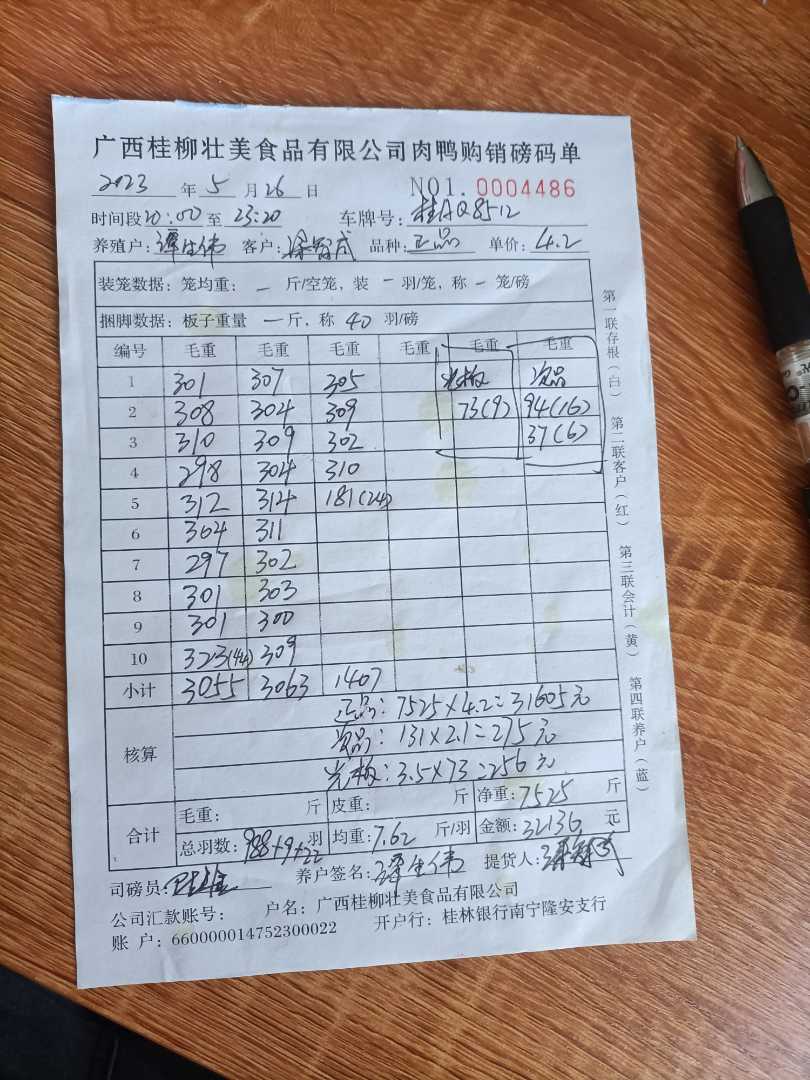 广西桂柳壮美食品有限公司肉鸭购销磅码单
2023 年 5 月 26 日 NO1. 0004486
时间段20:00至23:20 车牌号：桂AQ8512
养殖户：谭生伟 客户：梁智武 品种：正品 单价：4.2
装笼数据：笼均重：— 斤/空笼，装 — 羽/笼，称 — 笼/磅
捆脚数据：板子重量 — 斤，称 40 羽/磅
编号 毛重 毛重 毛重 毛重 毛重 毛重
1 301 307 305 光板 次品
2 308 304 309 73(9) 94(16)
3 310 309 302 37(6)
4 298 304 310
5 312 314 181(24)
6 304 311
7 297 302
8 301 303
9 301 300
10 323(44) 309
小计 3055 3063 1407
核算
正品：7525×4.2=31605元
次品：131×2.1=275元
光板：3.5×73=256元
合计
毛重： 斤 皮重： 斤 净重：7525 斤
总羽数：988+9+22 羽 均重：7.62 斤/羽 金额：32136 元
司磅员： 养户签名：谭生伟 提货人：梁智武
公司汇款账号： 户名：广西桂柳壮美食品有限公司
账 户：660000014752300022 开户行：桂林银行南宁隆安支行
第一联存根（白）
第二联客户（红）
第三联会计（黄）
第四联养户（蓝）